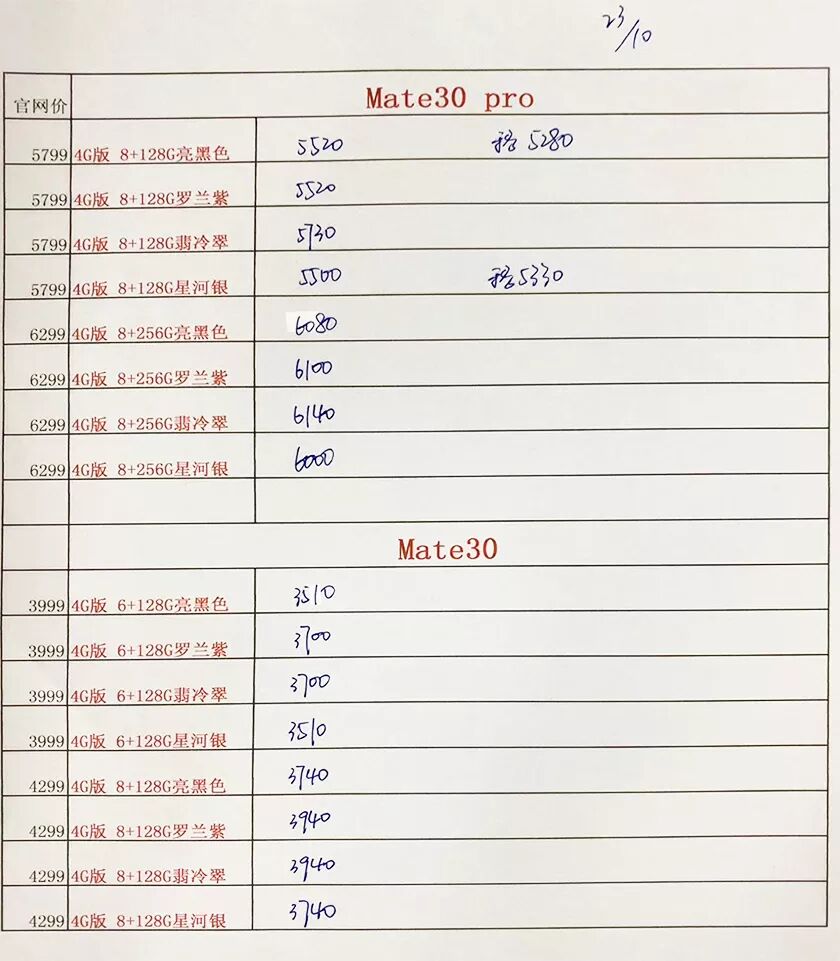 23/10
官网价 Mate30 pro
5799 4G版 8+128G亮黑色 5520 5280
5799 4G版 8+128G罗兰紫 5520
5799 4G版 8+128G翡冷翠 5730
5799 4G版 8+128G星河银 5500 5330
6299 4G版 8+256G亮黑色 6080
6299 4G版 8+256G罗兰紫 6100
6299 4G版 8+256G翡冷翠 6140
6299 4G版 8+256G星河银 6000
Mate30
3999 4G版 6+128G亮黑色 3510
3999 4G版 6+128G罗兰紫 3700
3999 4G版 6+128G翡冷翠 3700
3999 4G版 6+128G星河银 3510
4299 4G版 8+128G亮黑色 3740
4299 4G版 8+128G罗兰紫 3940
4299 4G版 8+128G翡冷翠 3940
4299 4G版 8+128G星河银 3740